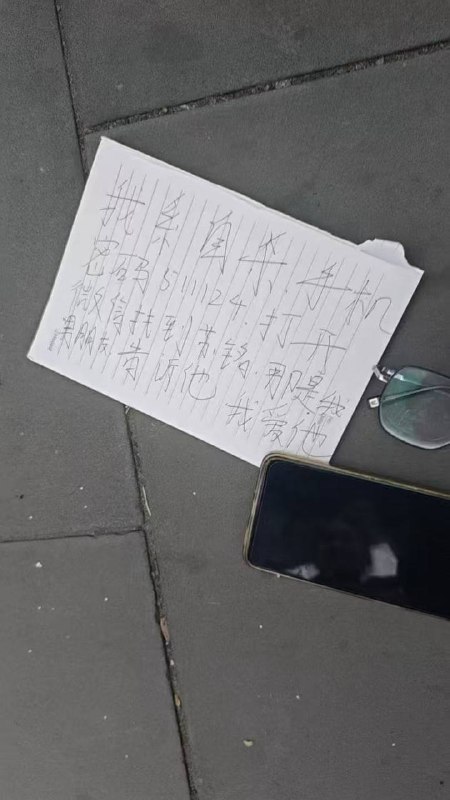 我系自杀手机
密码511124.打开
微信找到苏铭.那是我
男朋友告诉他我爱他